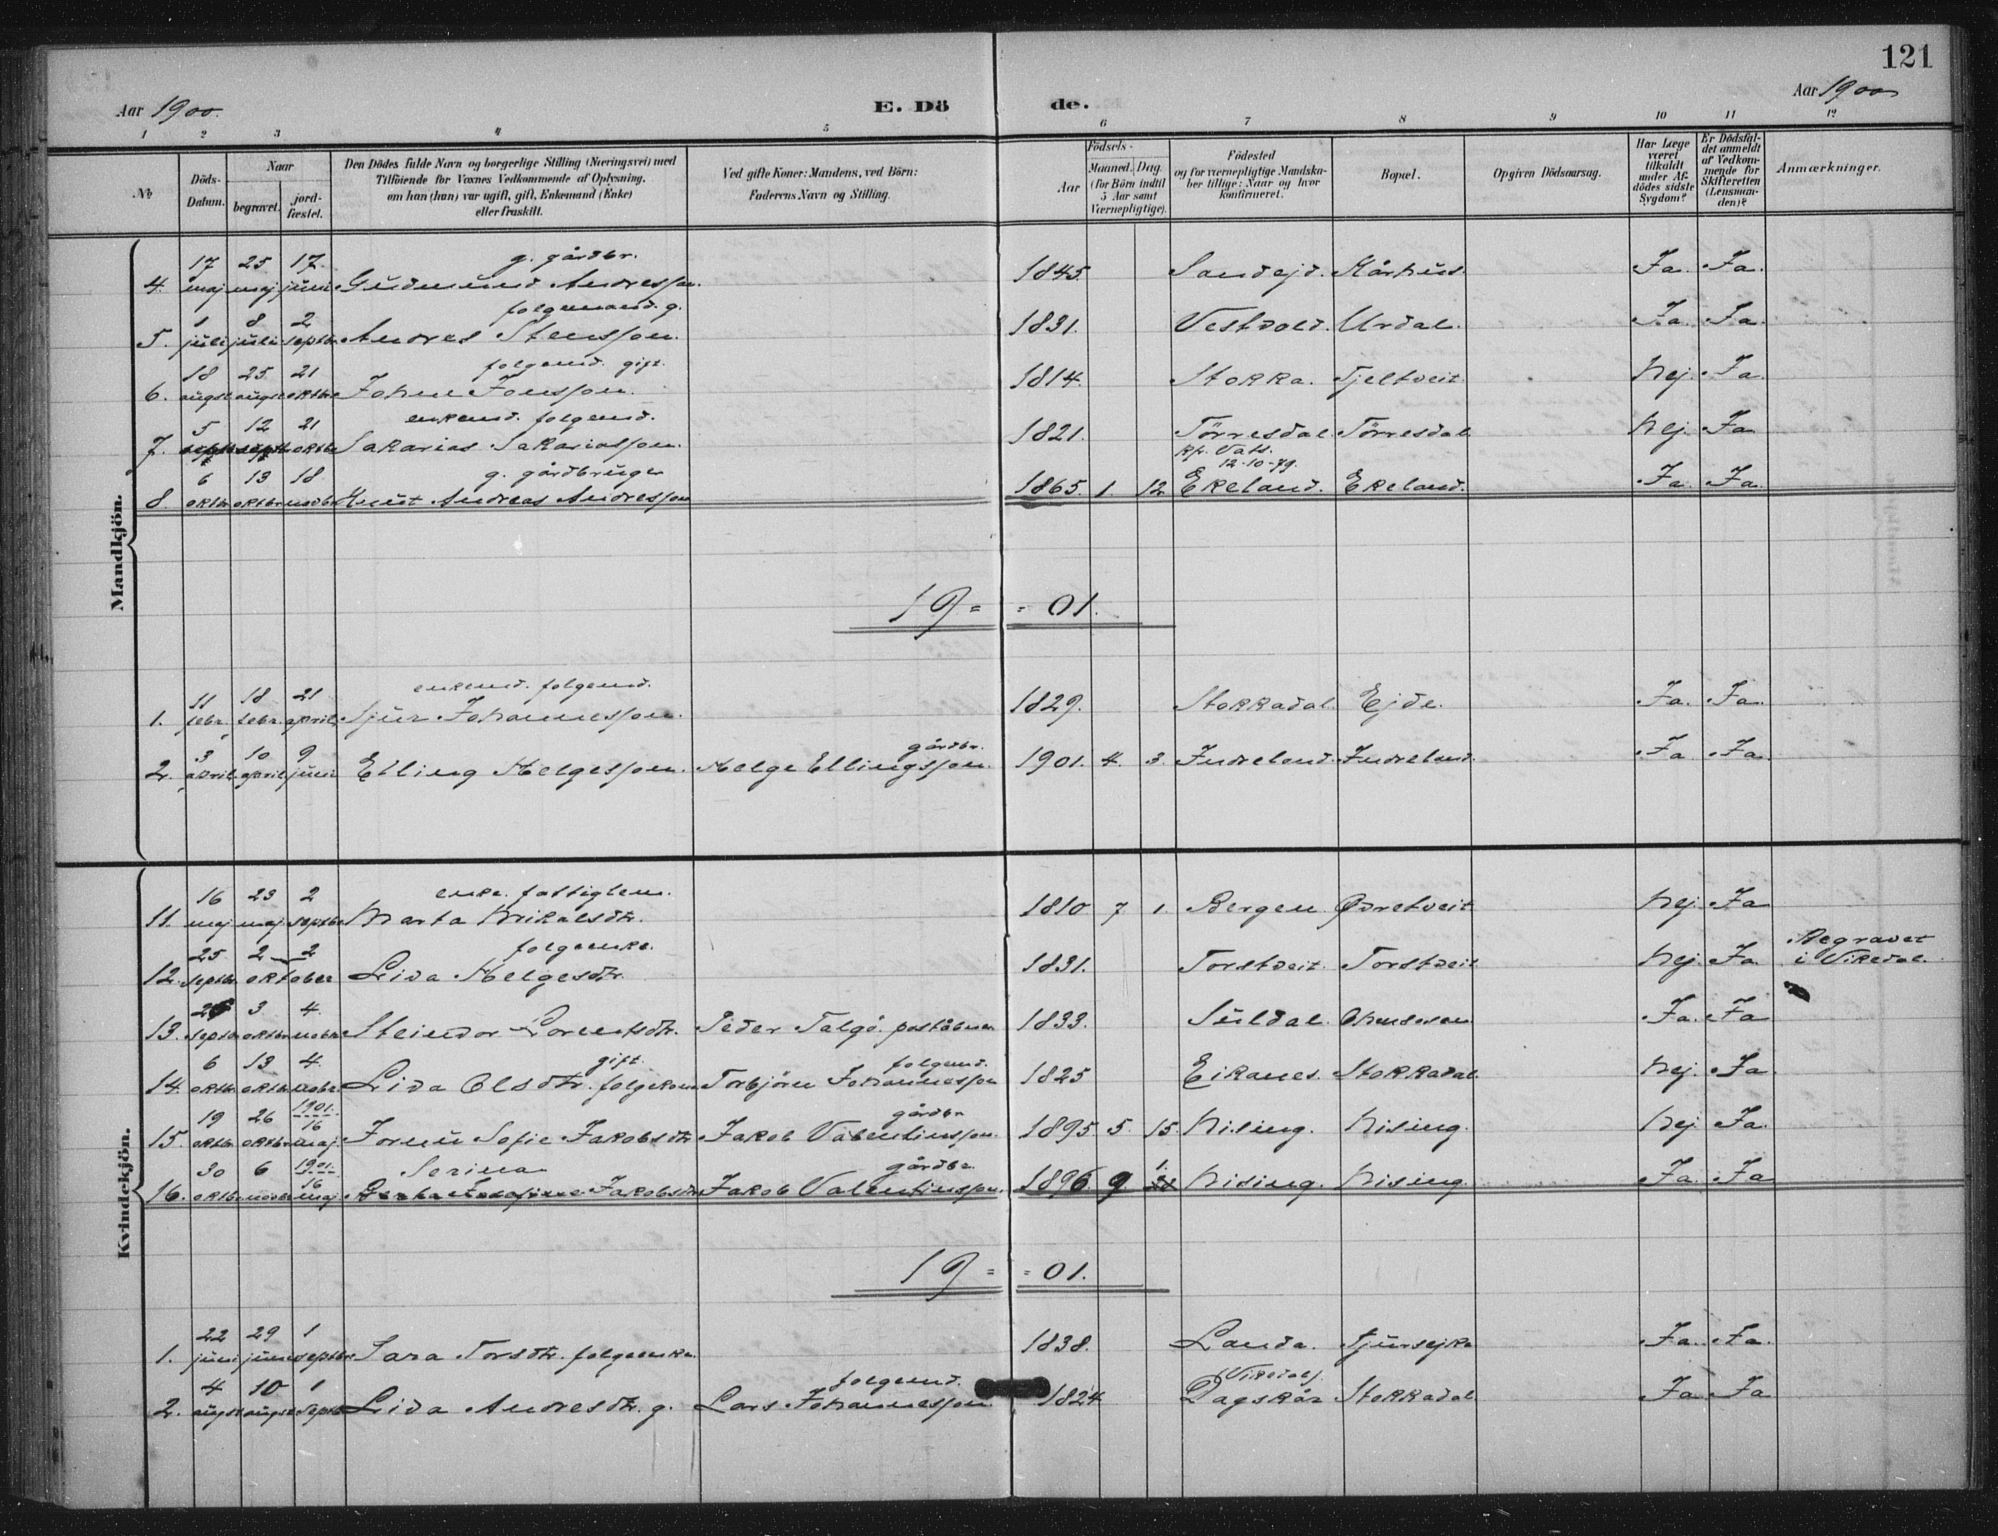 121
Aar 1900. E. Dö de. Aar 1900
1 2 3 4 5 6 7 8 9 10 11 12
№ Döds-Datum. Naar begravet. jord-fæstet. Den Dödes fulde Navn og borgerlige Stilling (Næringsvei) med Tilföiende for Voxnes Vedkommende af Oplysning, om han (hun) var ugift, gift, Enkemand (Enke) eller fraskilt. Ved gifte Koner: Mandens, ved Börn: Faderens Navn og Stilling. Födsels- Aar Maaned. Dag. (for Börn indtil 5 Aar samt Værnepligtige). Födested og for værnepligtige Mandskaber tillige: Naar og hvor konfirmeret. Bopæl. Opgiven Dödsaarsag. Har Læge været tilkaldt under Afdödes sidste Sygdom? Er Dödsfaldet anmeldt af Vedkommende for Skifteretten (Lensmanden)? Anmærkninger.
Mandkjön.
17 25 17. g. gårdbr.
4. maj maj juni Gudmund Andresson. 1845. Sandejd. Kårhus. Ja. Ja.
1 8 2 folgemand. g.
5. juli juli septbr Andres Stensson. 1831. Vestvold. Urdal. Ja. Ja.
18 25 21 folgemd. gift.
6. augst augst oktbr John Jonsson. 1814. Stokka. Tjeltveit. Nej. Ja.
5 12 21 enkemd. folgemd.
7. septb septb oktbr Sakarias Sakariasson. 1821. Törresdal. Törresdal. Nej. Ja
Kfr. Vats. 12-10-79.
6 13 18 g. gårdbruger
8 oktbr oktbr novbr Knut Andreas Andresson 1865. 1. 12 Ekeland. Ekeland. Ja. Ja.
19= =01.
11 18 21 enkemd. folgemd.
1. febr. febr. april Sjur Johannesson. 1829. Stokkadal. Ejde. Ja. Ja.
3 10 9 gårdbr.
2. april april juni Elling Helgesson. Helge Ellingsson. 1901. 4. 3. Indreland. Indreland. Ja Ja.
Kvindekjön.
16 23 2 enke. fattiglem.
11. maj maj septbr Marta Mikalsdtr. 1810 7 1. Bergen. Øvretveit Nej. Ja
25 2 — 2 folgeenke.
12. septbr. oktober Liva Helgesdtr. 1831. Torstveit. Torstveit Nej. Ja Begravet i Vikedal.
3 4.
13. septbr oktbr novbr Steindor Lorentsdtr. Peder Talgö. poståbner 1833. Suldal. Ja. Ja
6 13 4. gift. folgemd.
14. oktbr oktbr novbr Liva Olsdtr. folgekone Torbjörn Johannesson 1825 Eikanes. Stokkadal. Nej. Ja
19 26 1901. 16 gårdbr
15. oktbr oktbr maj. Jorun Sofie Jakobsdtr Jakob Valentinsson. 1895 5. 15. Nising. Nising. Nej Ja.
30 6 1901. 16 Serina gårdbr.
16. oktbr novbr maj Jakobsdtr Jakob Valentinsson. 1896. 9. 1. Nising. Nising. Ja Ja
19= =01.
22 29 1
1. juni juni septbr Sara Torsdtr. folgeenke. 1838. Landa. Tjursejke Ja. Ja.
4 10 1 folgemd. Vikedal.
2. augst augst septbr Liva Andresdtr. g. Lars Johannesson. 1824. Dagskår Stokkadal. Ja. Ja